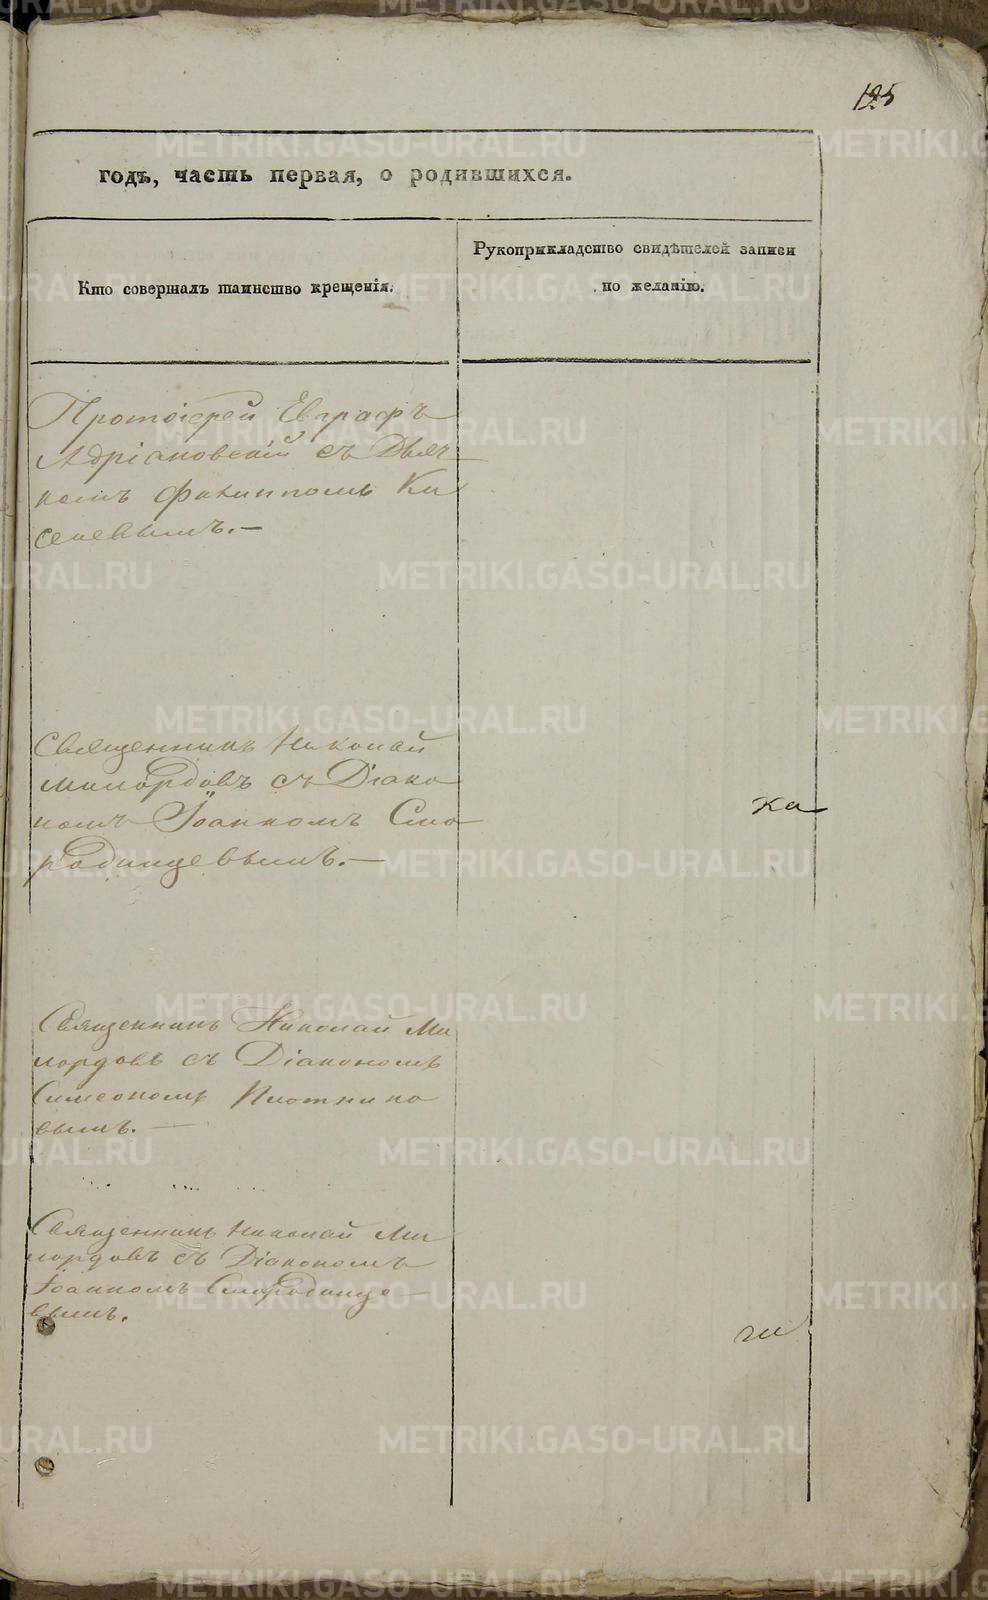 125
годъ, часть первая, о родившихся.
Кто совершалъ таинство крещенія.
Рукоприкладство свидѣтелей записи
по желанію.
Протоіерей Евграфъ
Адріановскій съ Дьяч
комъ Филиппомъ Ки
селевымъ.—
Священникъ Николай
Милордовъ съ Діако
номъ Іоанномъ Смо
родинцевымъ.—
ка
Священникъ Николай Ми
лордовъ съ Діакономъ
Симеономъ Плотнико
вымъ. —
Священникъ Николай Ми
лордовъ съ Діакономъ
Іоанномъ Смородинце—
вымъ.
ги
METRIKI.GASO-URAL.RU